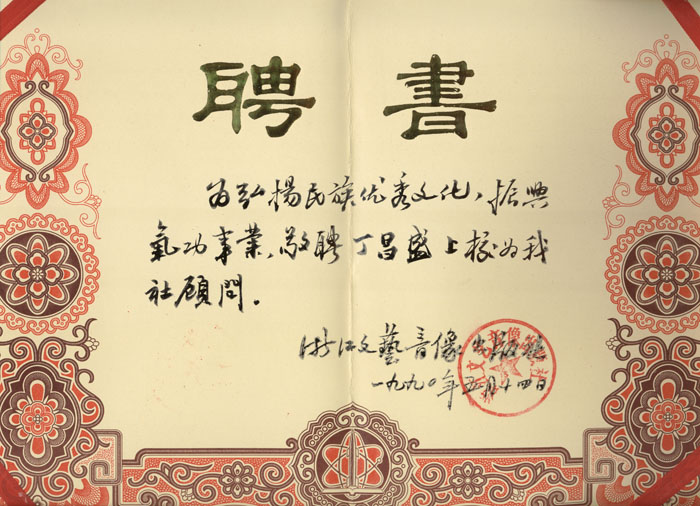 聘書
为弘揚民族优秀文化，振興
氣功事業，敬聘丁昌盛上校为我
社顧問。
浙江文藝音像出版社
一九九〇年五月十四日